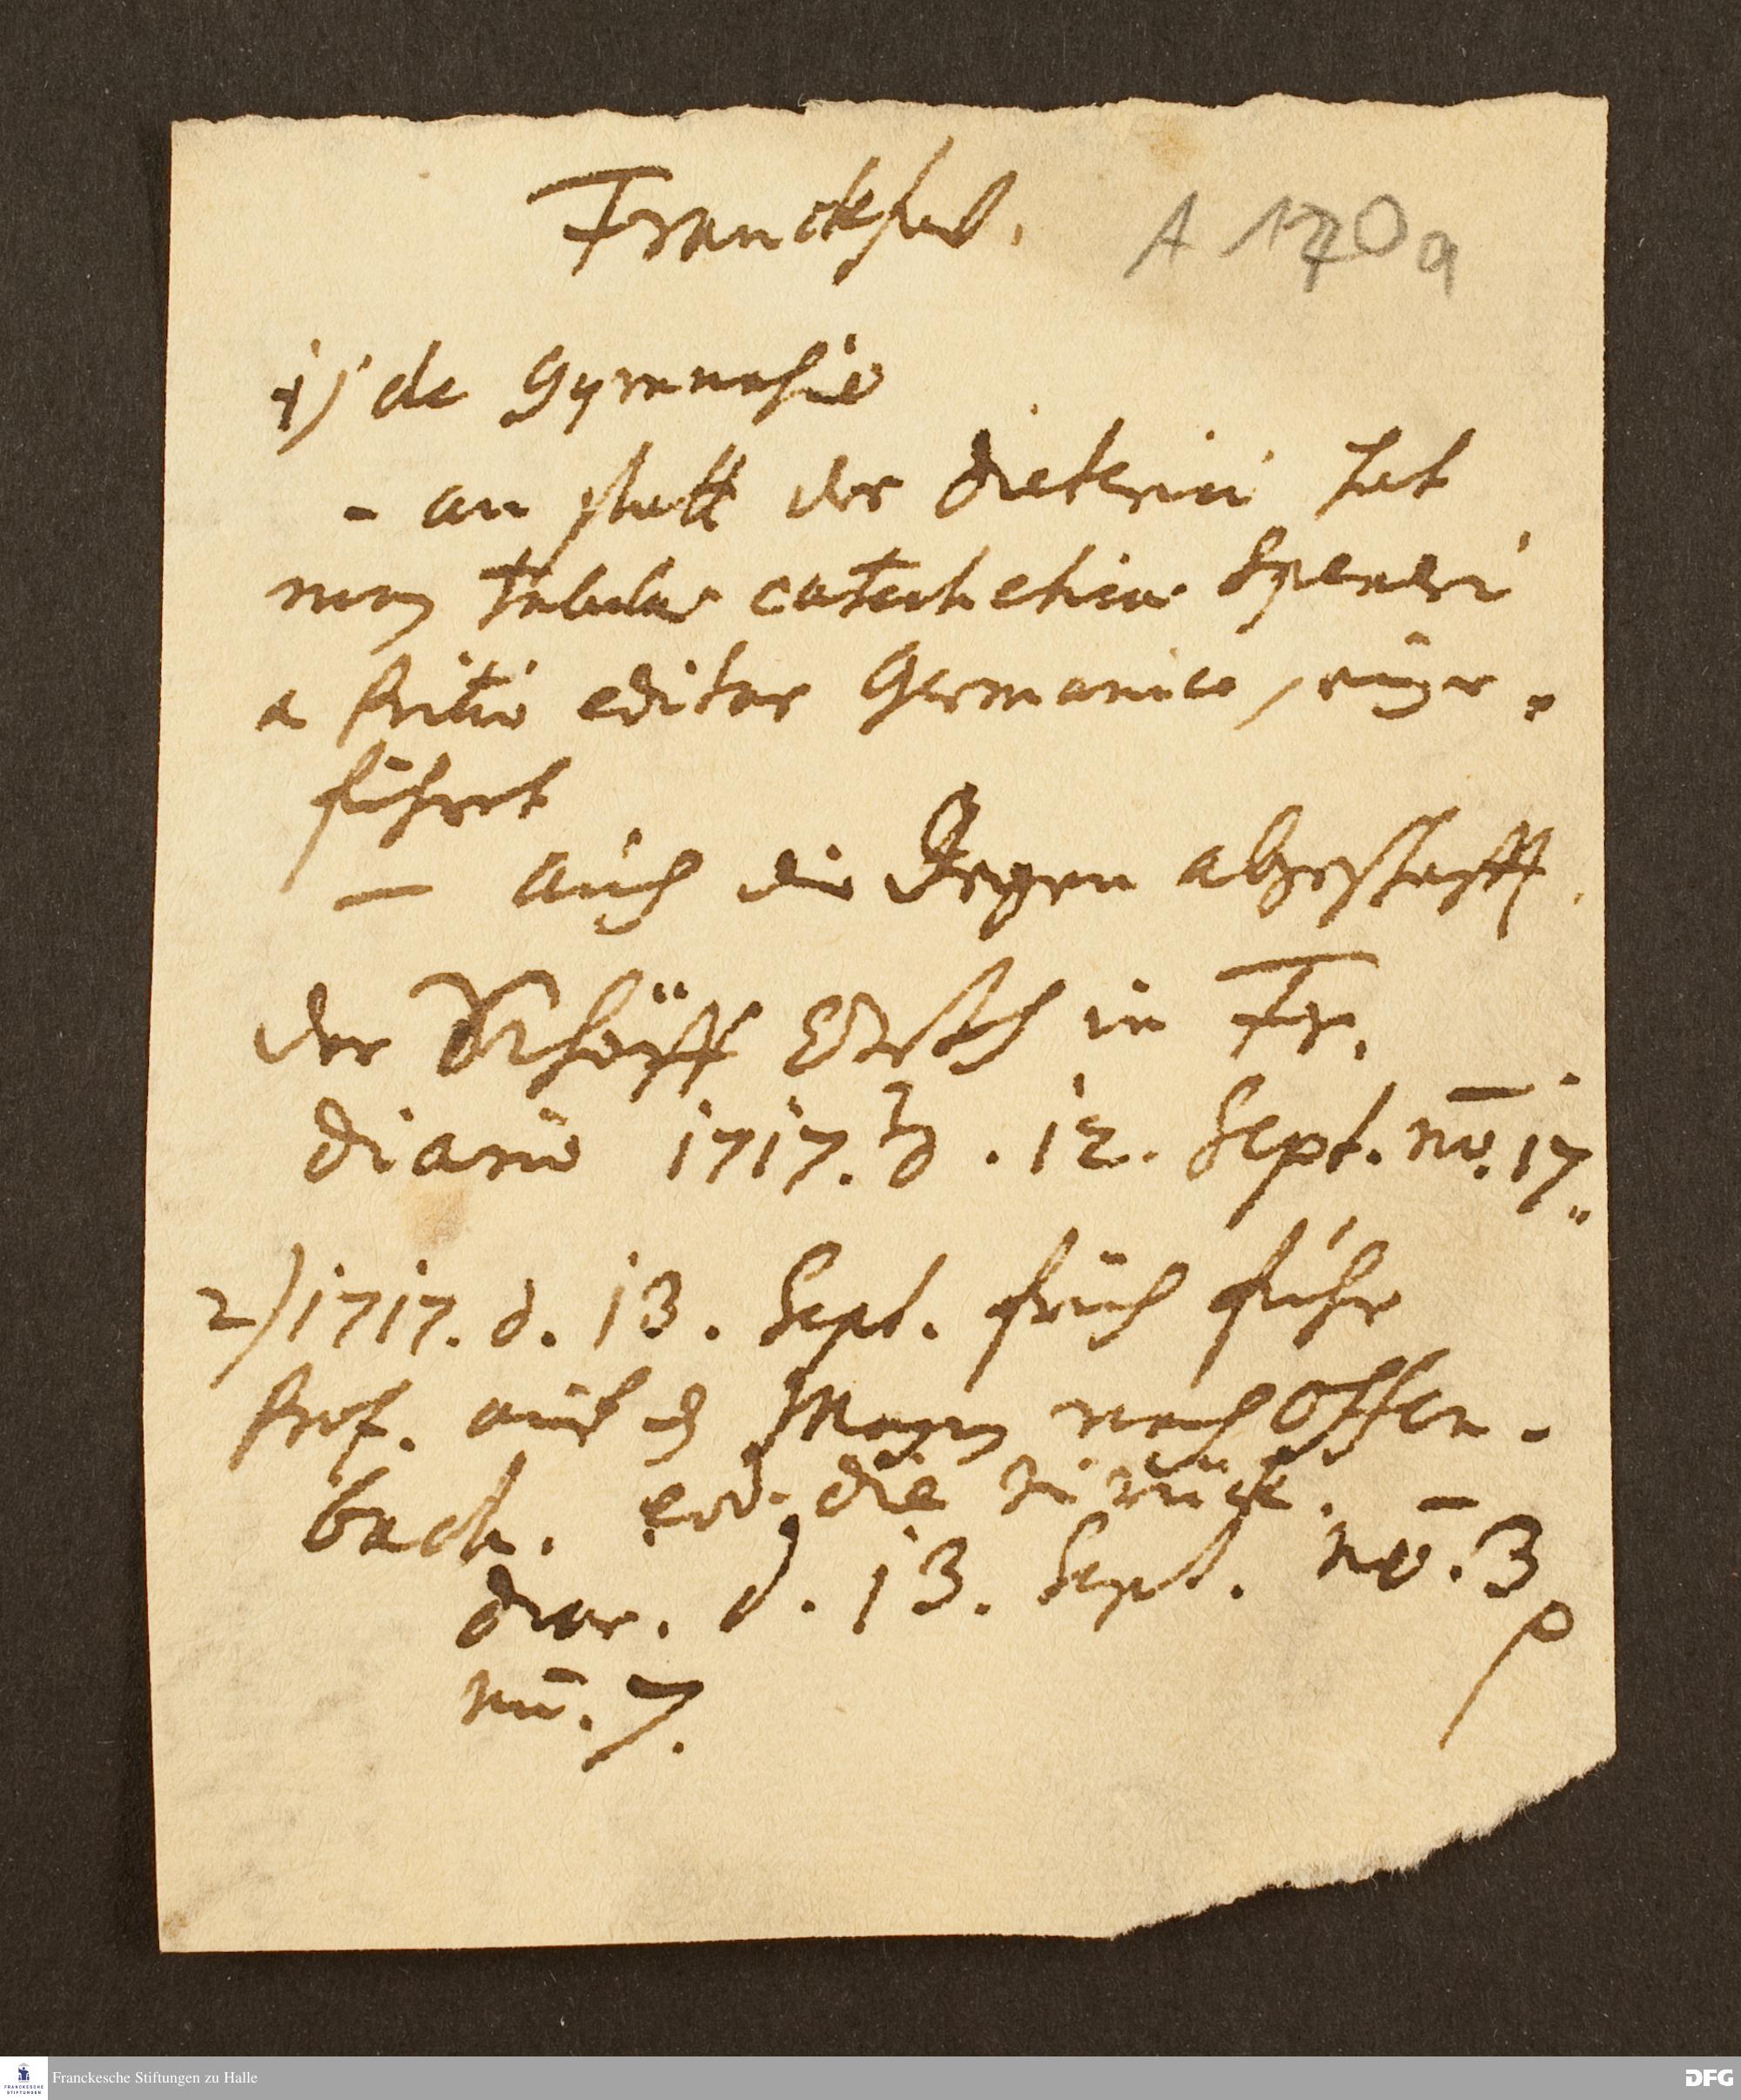 Franckfurt. A 170a
1) de Gymnasio
- an statt des Dieterici hat
man Tabulas catecheticas Speneri
a Pritio editas Germanice, einge-
führet
- auch die Degen abgeschafft.
der Schöff in Fr.
diario 1717. d. 12. Sept. nū. 17.
2) 1717. d. 13. Sept. früh fuhr
Prof. auf dem Mayn nach Offen-
bach. eod. die zurück.
diar. d. 13. Sept. nū. 3
nū. 7.
Franckesche Stiftungen zu Halle
FRANCKESCHE
STIFTUNGEN
DFG